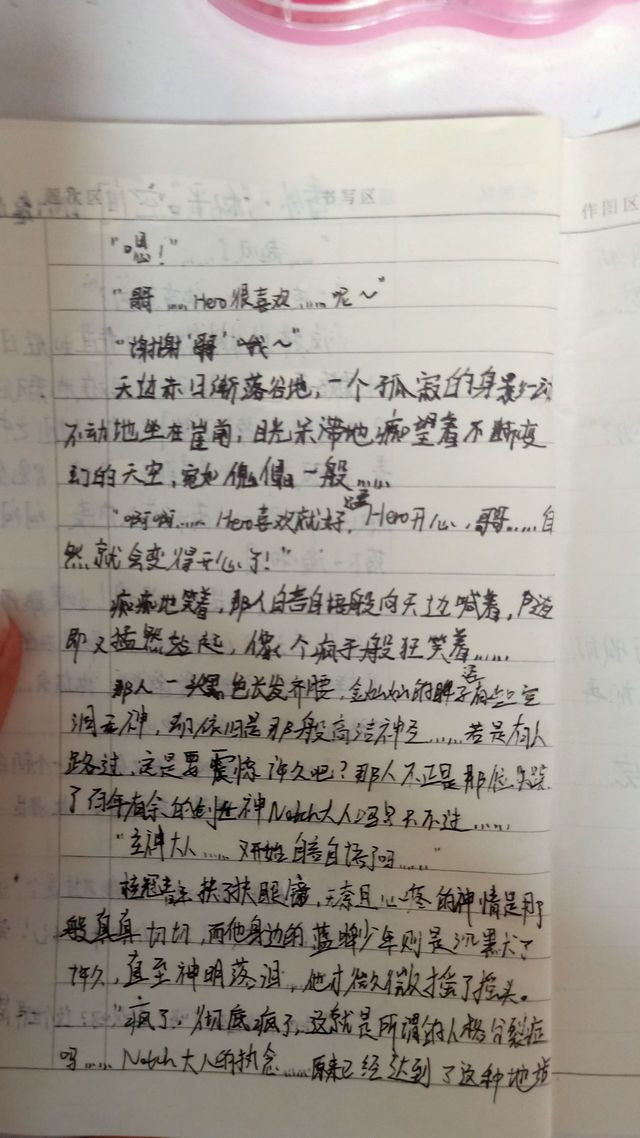 书写区
作图区
"嗯！"
"哥……Hero很喜欢……呢～"
"谢谢'哥'哦～"
天边赤日渐落谷地，一个孤寂的身影一动
不动地坐在崖前，目光呆滞地痴望着不断变
幻的天空，宛如傀儡一般……
"啊啊……Hero喜欢就好，Hero开心，哥哥……自
然就会变得开心了！"
痴痴地笑着，那人自言自语般向天边喊着，随
即又猛然站起，像个疯子般狂笑着……
那人一头黑色长发齐腰，金灿灿的眸子有些空
洞无神，却依旧是那般高洁神圣……若是有人
路过，定是要震惊许久吧？那人不正是那位失踪
了百年有余的创世神Notch大人吗？只不过……
"主神大人……又开始自言自语了吗……"
桂冠青年扶了扶眼镜，无奈且心疼的神情是那
般真真切切，而他身边的蓝眸少年则是沉默了
许久，直至神明落泪，他才微微摇了摇头。
"疯了，彻底疯了，这就是所谓的人格分裂症
吗……Notch大人的执念……原来已经达到了这种地步